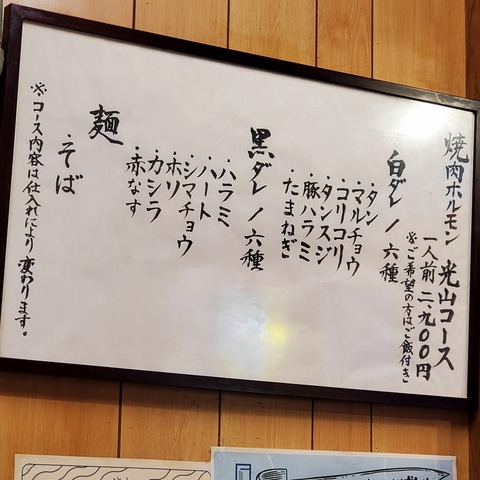 焼肉ホルモン 光山コース
一人前 二、九〇〇円
※ご希望の方はご飯付き
白ダレ / 六種
・タン
・マルチョウ
・コリコリ
・タンスジ
・豚ハラミ
・たまねぎ
黒ダレ / 六種
・ハラミ
・ハート
・シマチョウ
・ホソ
・カシラ
・赤なす
麺
・そば
※コース内容は仕入れにより変わります。